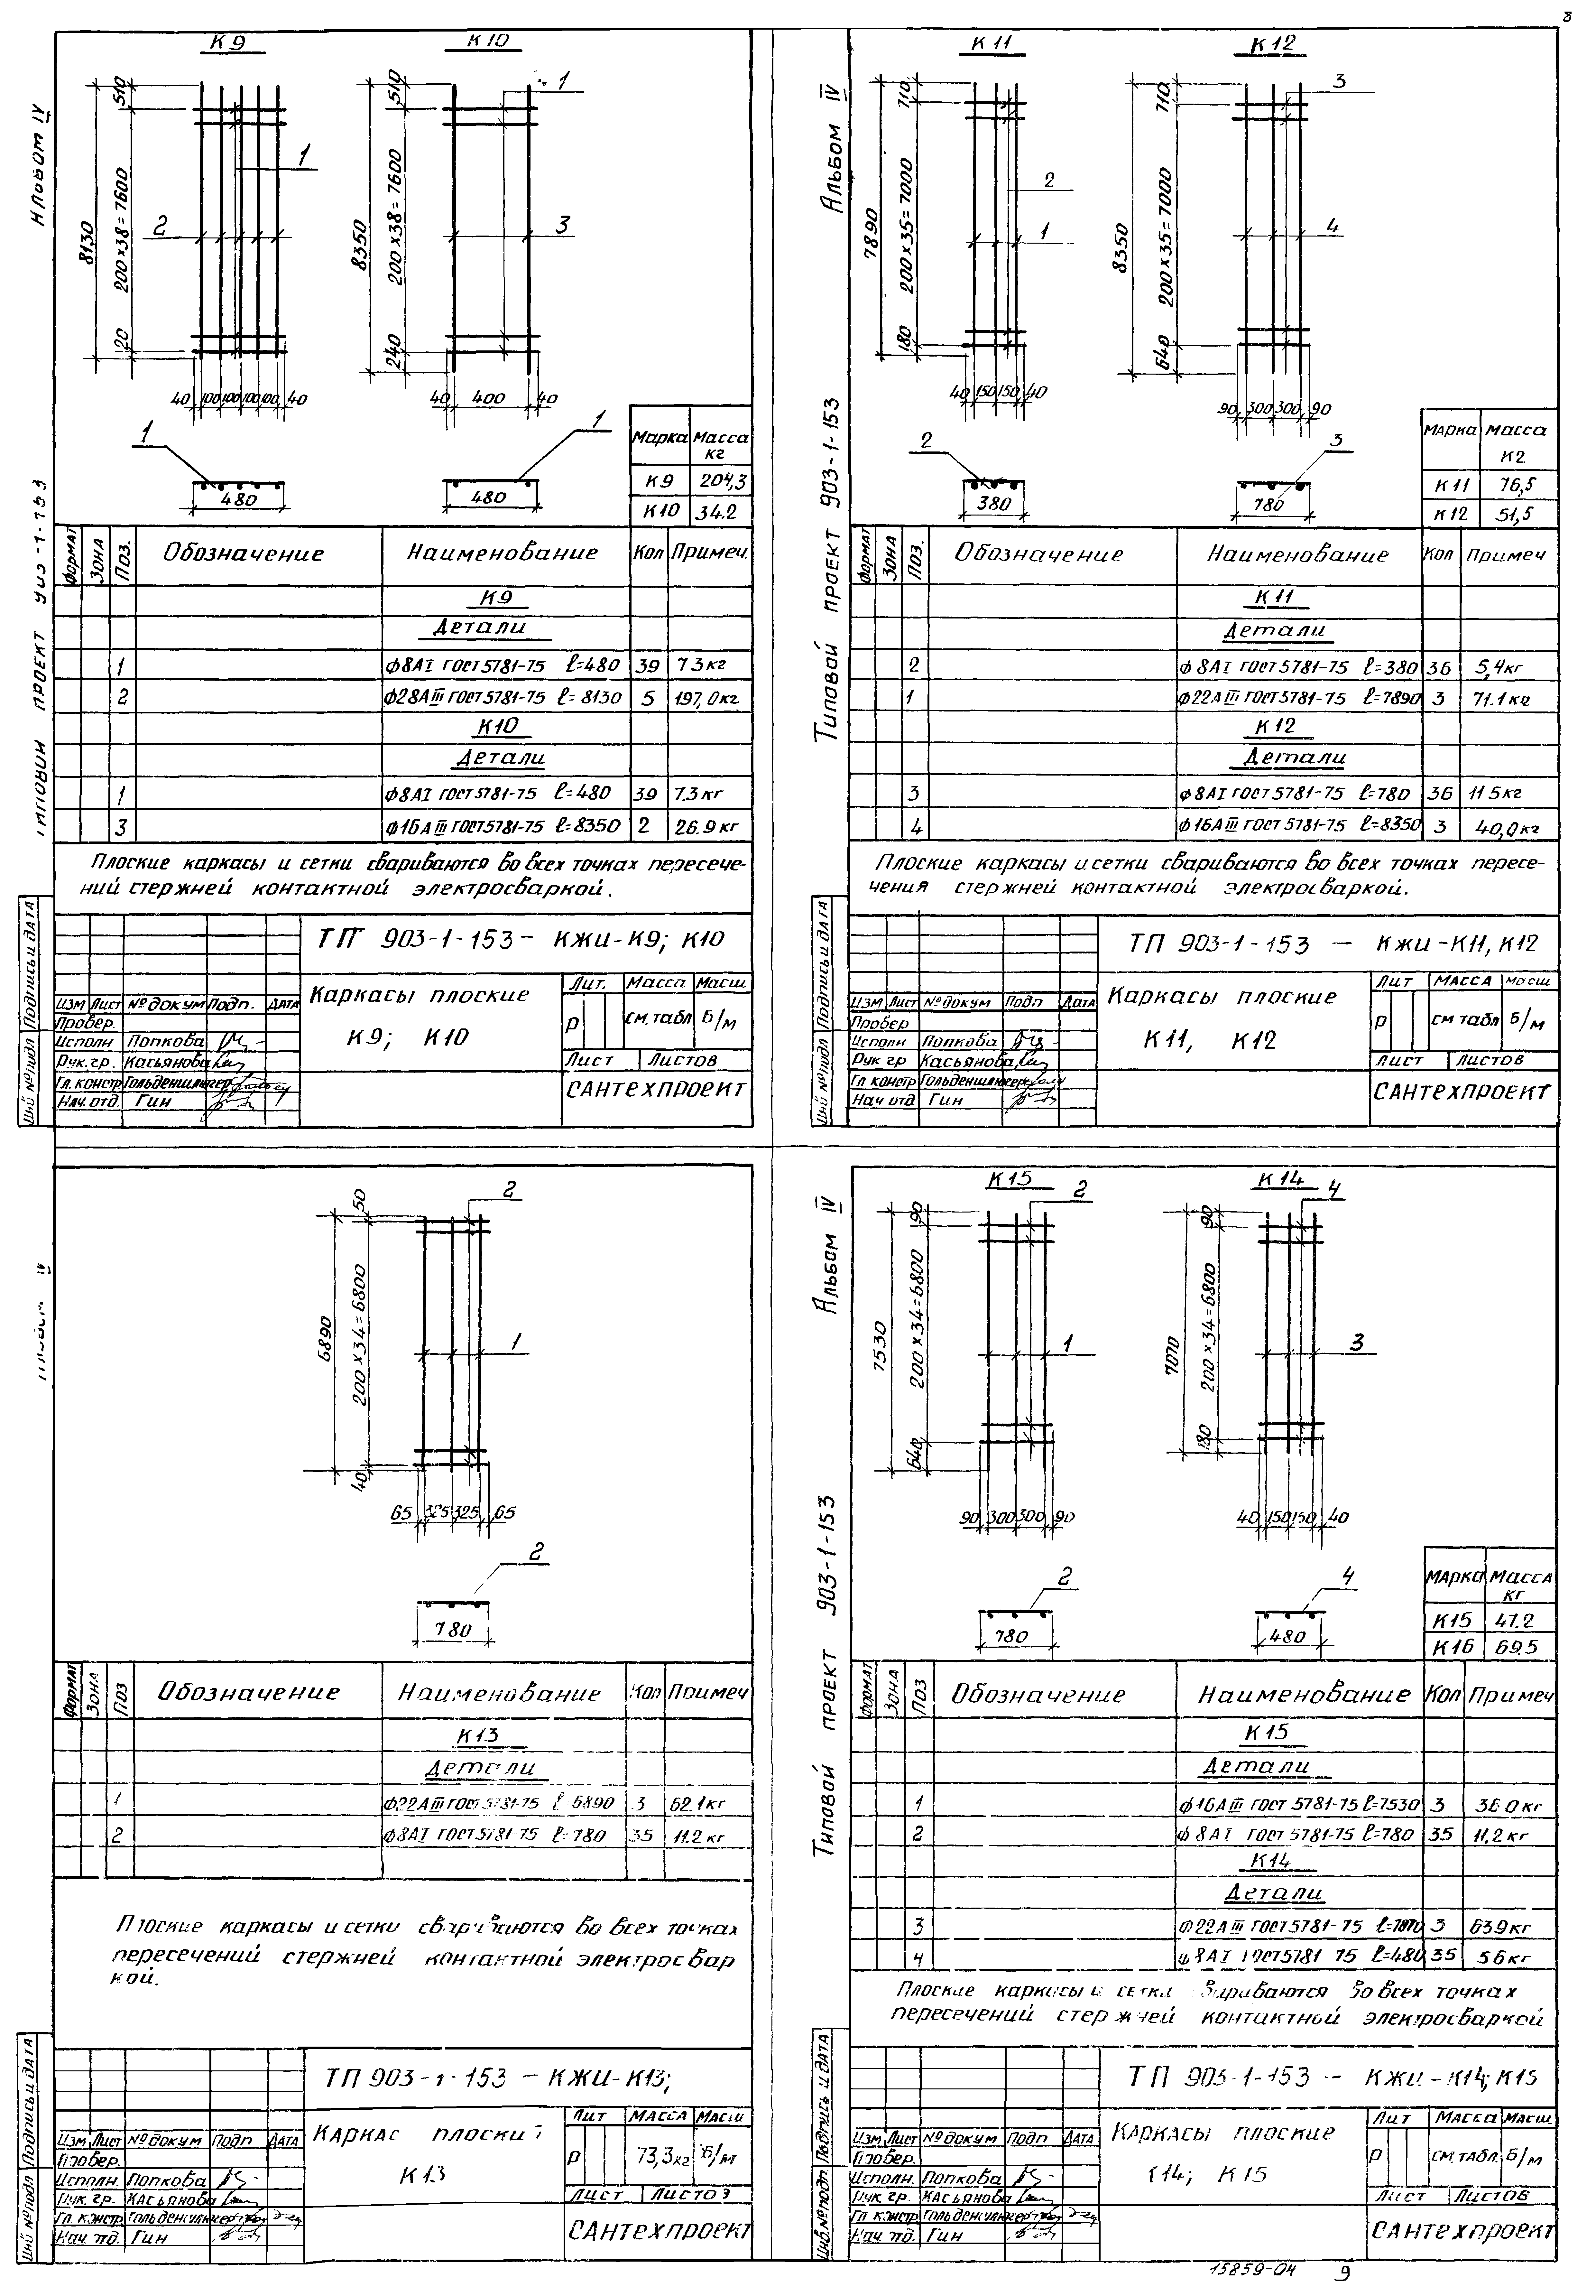 8
К9
К10
Альбом IV
510
200×38=7600
8130
20
1
2
40 100 100 100 100 40
1
480
510
200×38=7600
8350
240
1
3
40 400 40
1
480
Марка Масса кг
К9 204,3
К10 34.2
Формат Зона Поз. Обозначение Наименование Кол Примеч.
К9
Детали
1 ф8АI ГОСТ 5781-75 ℓ=480 39 7.3 кг
2 ф28АIII ГОСТ 5781-75 ℓ=8130 5 197,0 кг
К10
Детали
1 ф8АI ГОСТ 5781-75 ℓ=480 39 7.3 кг
3 ф16АIII ГОСТ 5781-75 ℓ=8350 2 26.9 кг
Плоские каркасы и сетки свариваются во всех точках пересече-
ний стержней контактной электросваркой.
ТП 903-1-153 – КЖИ-К9; К10
Каркасы плоские
К9; К10
Лит. Масса Масш
Р см. табл Б/м
Лист Листов
САНТЕХПРОЕКТ
Изм Лист № докум Подп. Дата
Провер.
Исполн Попкова
Рук. гр. Касьянова
Гл. констр Гольденшлюгер
Нач. отд. Гин
Инв № подл Подпись и дата
К11
К12
Альбом IV
Типовой проект 903-1-153
710
200×35=7000
7890
180
2
1
40 150 150 40
2
380
710
200×35=7000
8350
640
3
4
90 300 300 90
3
780
Марка Масса кг
К11 76,5
К12 51,5
Формат Зона Поз. Обозначение Наименование Кол Примеч
К11
Детали
2 ф8АI ГОСТ 5781-75 ℓ=380 36 5,4 кг
1 ф22АIII ГОСТ 5781-75 ℓ=7890 3 71.1 кг
К12
Детали
3 ф8АI ГОСТ 5781-75 ℓ=780 36 11 5 кг
4 ф16АIII ГОСТ 5781-75 ℓ=8350 3 40,0 кг
Плоские каркасы и сетки свариваются во всех точках пересе-
чения стержней контактной электросваркой.
ТП 903-1-153 – КЖИ-К11, К12
Каркасы плоские
К11, К12
Лит Масса Масш
Р см табл Б/м
Лист Листов
САНТЕХПРОЕКТ
Изм Лист № докум Подп Дата
Провер
Исполн Попкова
Рук гр Касьянова
Гл констр Гольденшлюгер
Нач отд Гин
Инв № подл Подпись и дата
50
200×34=6800
6890
40
2
1
65 325 325 65
2
780
Формат Зона Поз Обозначение Наименование Кол Примеч
К13
Детали
1 ф22АIII ГОСТ 5781-75 ℓ=6890 3 62.1 кг
2 ф8АI ГОСТ 5781-75 ℓ=780 35 11.2 кг
Плоские каркасы и сетки свариваются во всех точках
пересечений стержней контактной электросвар
кой.
ТП 903-1-153 – КЖИ-К13;
Каркас плоский
К13
Лит Масса Масш
Р 73,3 кг Б/м
Лист Листов
САНТЕХПРОЕКТ
Изм Лист № докум Подп Дата
Провер.
Исполн. Попкова
Рук. гр. Касьянова
Гл констр Гольденшлюгер
Нач. отд. Гин
Инв № подл Подпись и дата
К15
К14
Альбом IV
Типовой проект 903-1-153
90
200×34=6800
7530
640
2
1
90 300 300 90
2
780
90
200×34=6800
7070
180
4
3
40 150 150 40
4
480
Марка Масса кг
К15 47.2
К16 69.5
Формат Зона Поз Обозначение Наименование Кол Примеч
К15
Детали
1 ф16АIII ГОСТ 5781-75 ℓ=7530 3 36 0 кг
2 ф8АI ГОСТ 5781-75 ℓ=780 35 11,2 кг
К14
Детали
3 ф22АIII ГОСТ 5781-75 ℓ=7070 3 63.9 кг
4 ф8АI ГОСТ 5781 75 ℓ=480 35 5 6 кг
Плоские каркасы и сетки свариваются во всех точках
пересечений стержней контактной электросваркой
ТП 903-1-153 – КЖИ-К14; К15
Каркасы плоские
К14; К15
Лит Масса Масш
Р см. табл. Б/м
Лист Листов
САНТЕХПРОЕКТ
Изм Лист № докум Подп Дата
Провер.
Исполн. Попкова
Рук. гр. Касьянова
Гл констр Гольденшлюгер
Нач. отд. Гин
Инв. № подл Подпись и дата
15859-04 9